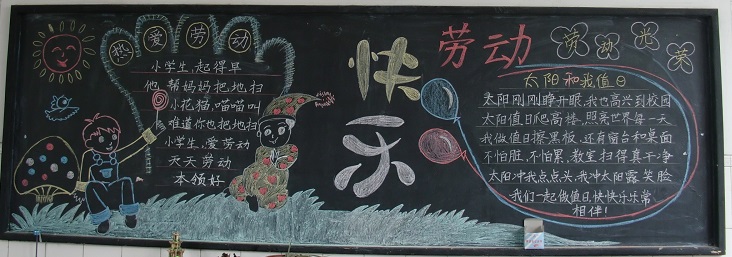 热爱劳动
小学生,起得早
他帮妈妈把地扫
小花猫,喵喵叫
难道你也把地扫
小学生,爱劳动
天天劳动
本领好
快乐
劳动
劳动光荣
太阳和我值日
太阳刚刚睁开眼,我也高兴到校园
太阳值日爬高楼,照亮世界每一天
我做值日擦黑板,还有窗台和桌面
不怕脏,不怕累,教室扫得真干净
太阳冲我点点头,我冲太阳露笑脸
我们一起做值日,快快乐乐常
相伴!